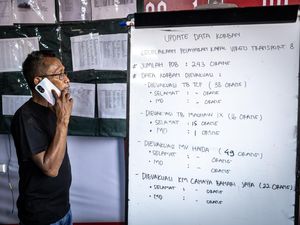 UPDATE DATA KORBAN
KECELAKAAN PELAYARAN KAPAL
# JUMLAH POB : 243 ORANG
# DATA KORBAN DIEVAKUASI :
- DIEVAKUASI TB TCP (38 ORANG)
• SELAMAT : - ORANG
• MD : - ORANG
- DIEVAKUASI TB IX (16 ORANG)
• SELAMAT : 15 ORANG
• MD : 1 ORANG
- DIEVAKUASI MV HAIDA (49 ORANG)
• SELAMAT : - ORANG
• MD : - ORANG
- DIEVAKUASI KM CAHAYA BAHARI JAYA (22 ORANG)
• SELAMAT : - ORANG
• MD : - ORANG